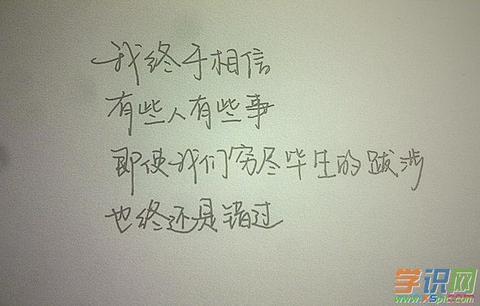 我终于相信
有些人有些事
即使我们穷尽毕生的跋涉
也终还是错过
学识网
www.XSpic.com